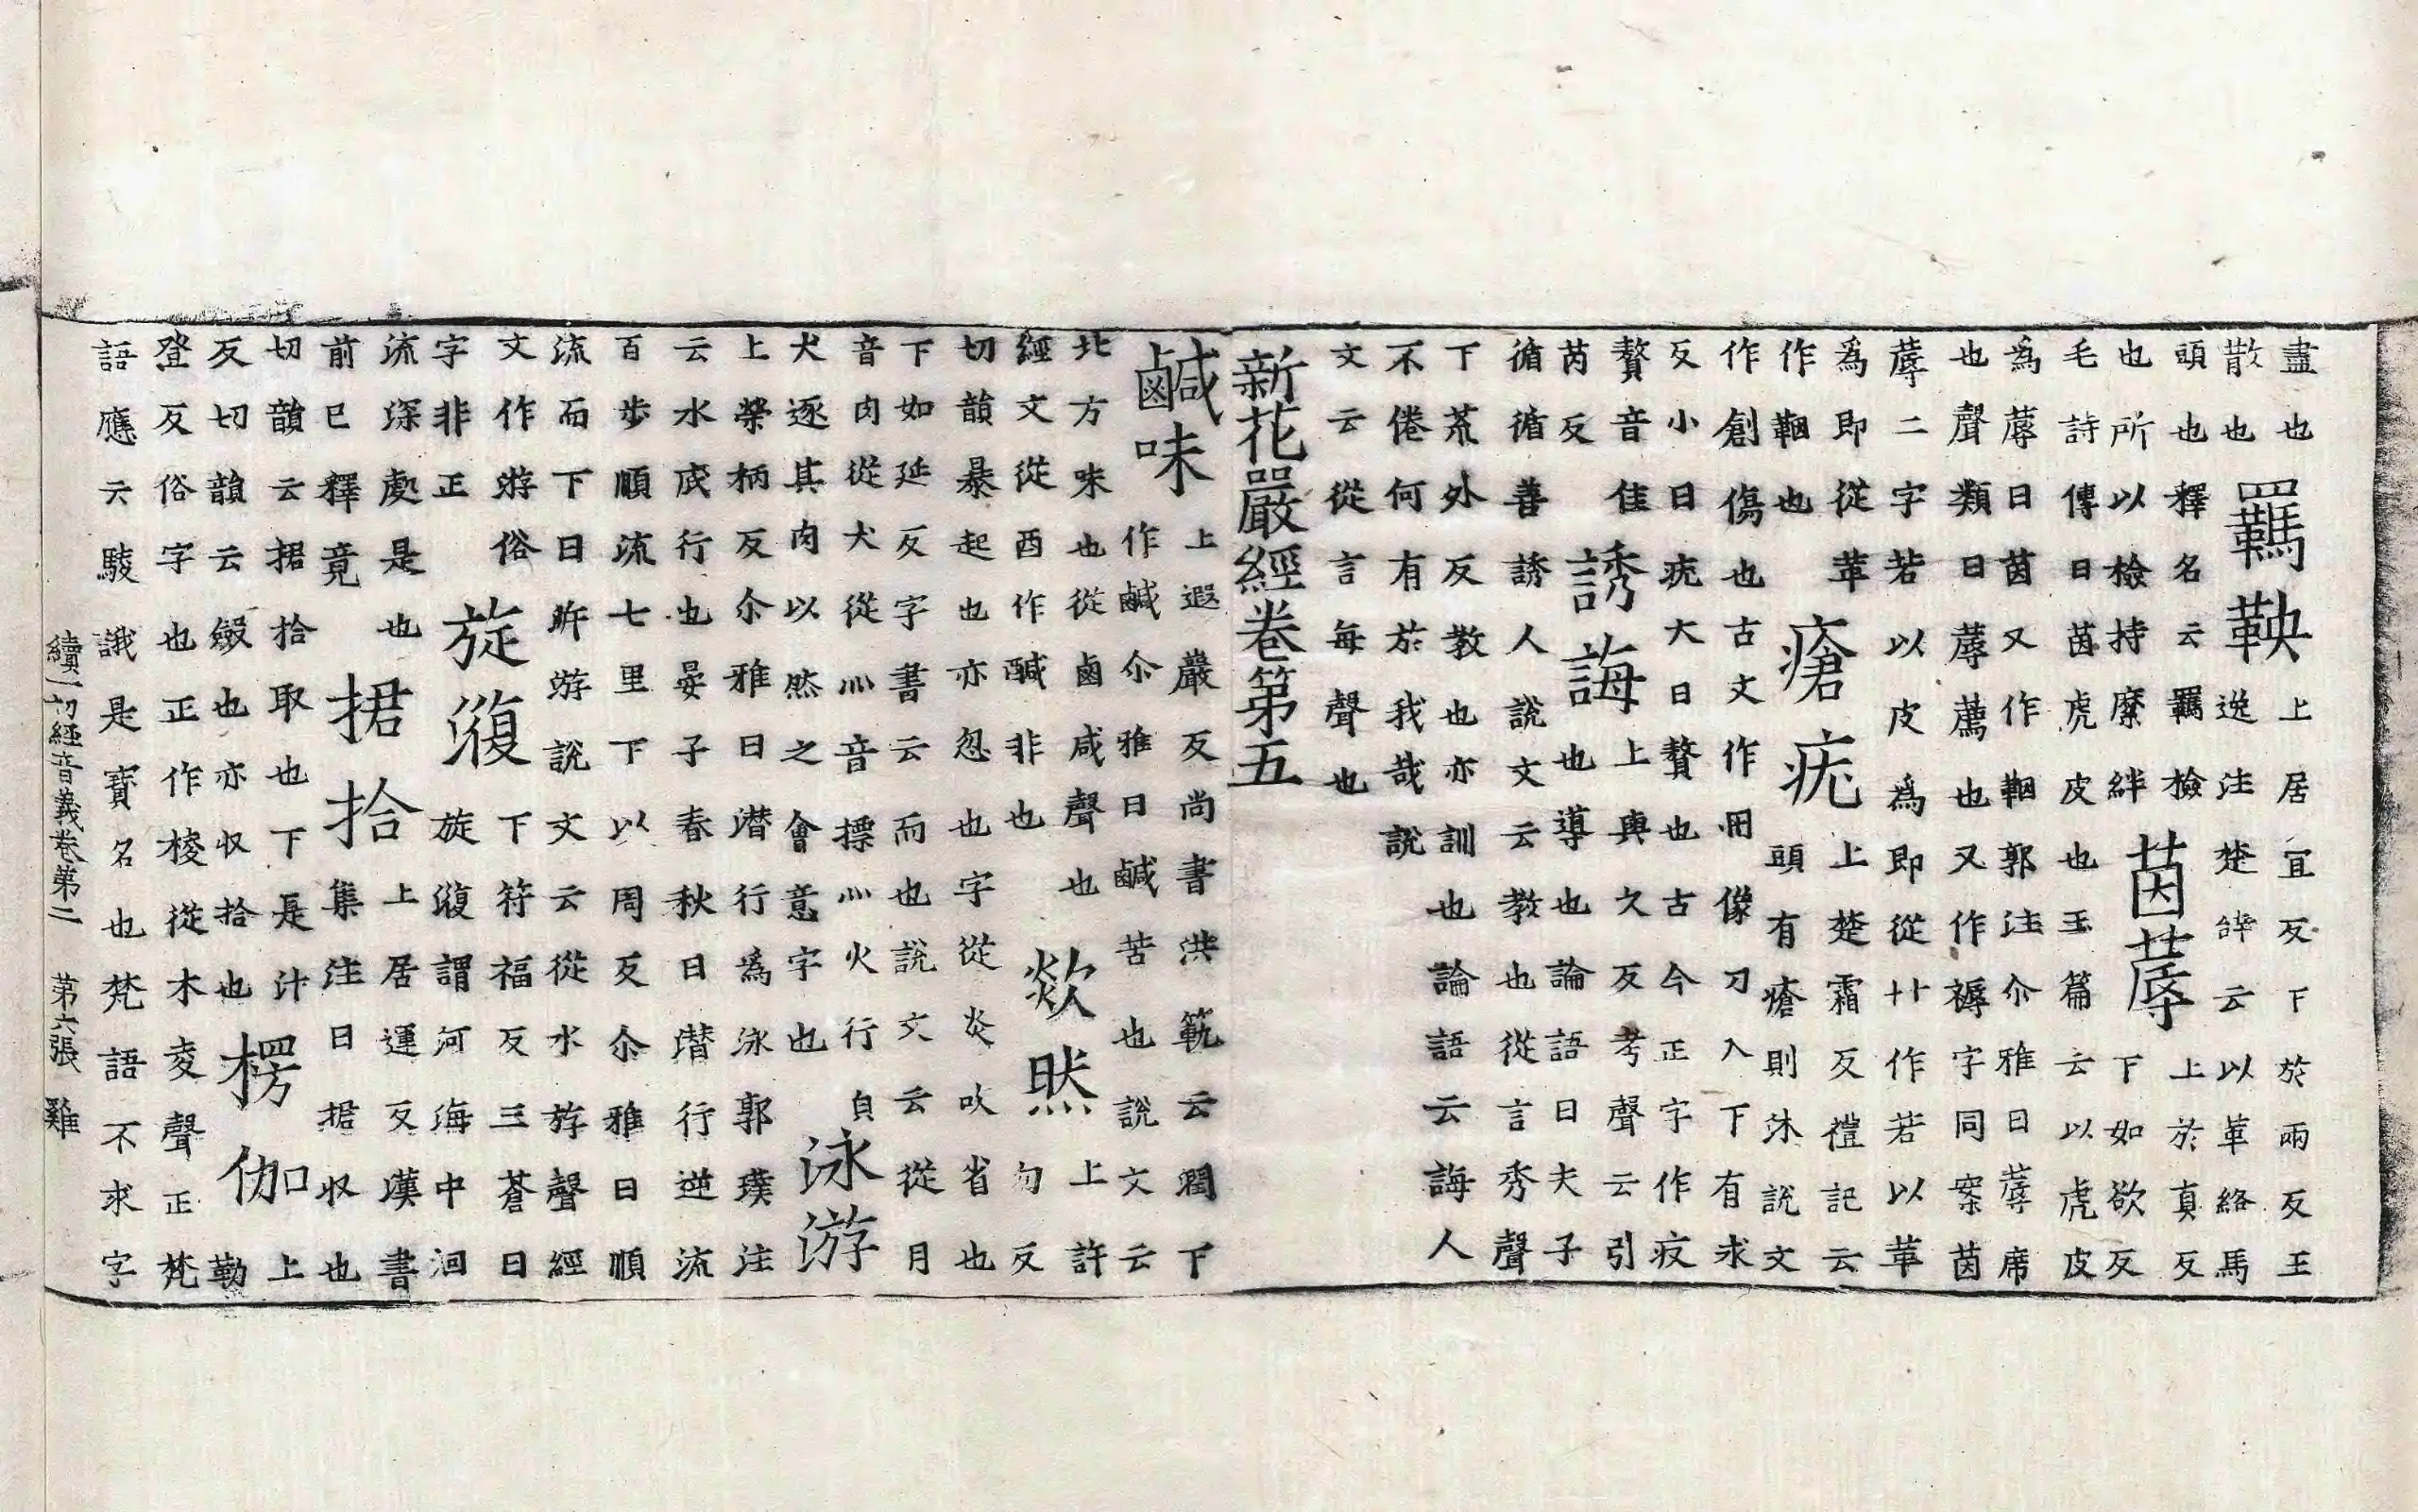 盡也
散也
羈鞅
上居宜反下於兩反王
逸注楚辞云以革絡馬
頭也釋名云羈檢
也所以檢持縻絆
茵蓐
上於真反
下如欲反
毛詩傳曰茵虎皮也玉篇云以虎皮
為蓐曰茵又作鞇郭注尒雅曰蓐席
也聲類曰蓐薦也又作褥字同案茵
蓐二字若以皮為即從廾作若以革
為即從革
作鞇也
瘡疣
上楚霜反禮記云
頭有瘡則沐說文
作創傷也古文作刅像刀入下有求
反小曰疣大曰贅也古今正字作疚
贅音佳
芮反
誘誨
上輿久反考聲云引
也導也論語曰夫子
循循善誘人說文云教也從言秀聲
下荒外反教也亦訓也論語云誨人
不倦何有於我哉說
文云從言每聲也
新花嚴經卷第五
鹹味
上遐巖反尚書洪範云潤下
作鹹尒雅曰鹹苦也說文云
北方味也從鹵咸聲也
經文從酉作醎非也
欻然
上許
勿反
切韻暴起也亦忽也字從炎吹省也
下如延反字書云而也說文云從月
音肉從犬從灬音摽灬火行自
犬逐其肉以然之會意字也
泳游
上榮柄反尒雅曰潜行為泳郭璞注
云水底行也晏子春秋曰潜行逆流
百步順流七里下以周反尒雅曰順
流而下曰泝游說文云從水斿聲經
文作遊俗
字非正
旋澓
下符福反三蒼曰
旋澓謂河海中洄
流深處是也
前已釋竟
捃拾
上居運反漢書
集注曰捃収也
切韻云捃拾取也下是汁
反切韻云斂也亦収拾也
楞伽
上
勒
登反俗字也正作棱從木夌聲正梵
語應云駿誐是寶名也梵語不求字
續一切經音義卷第二 第六張 雞